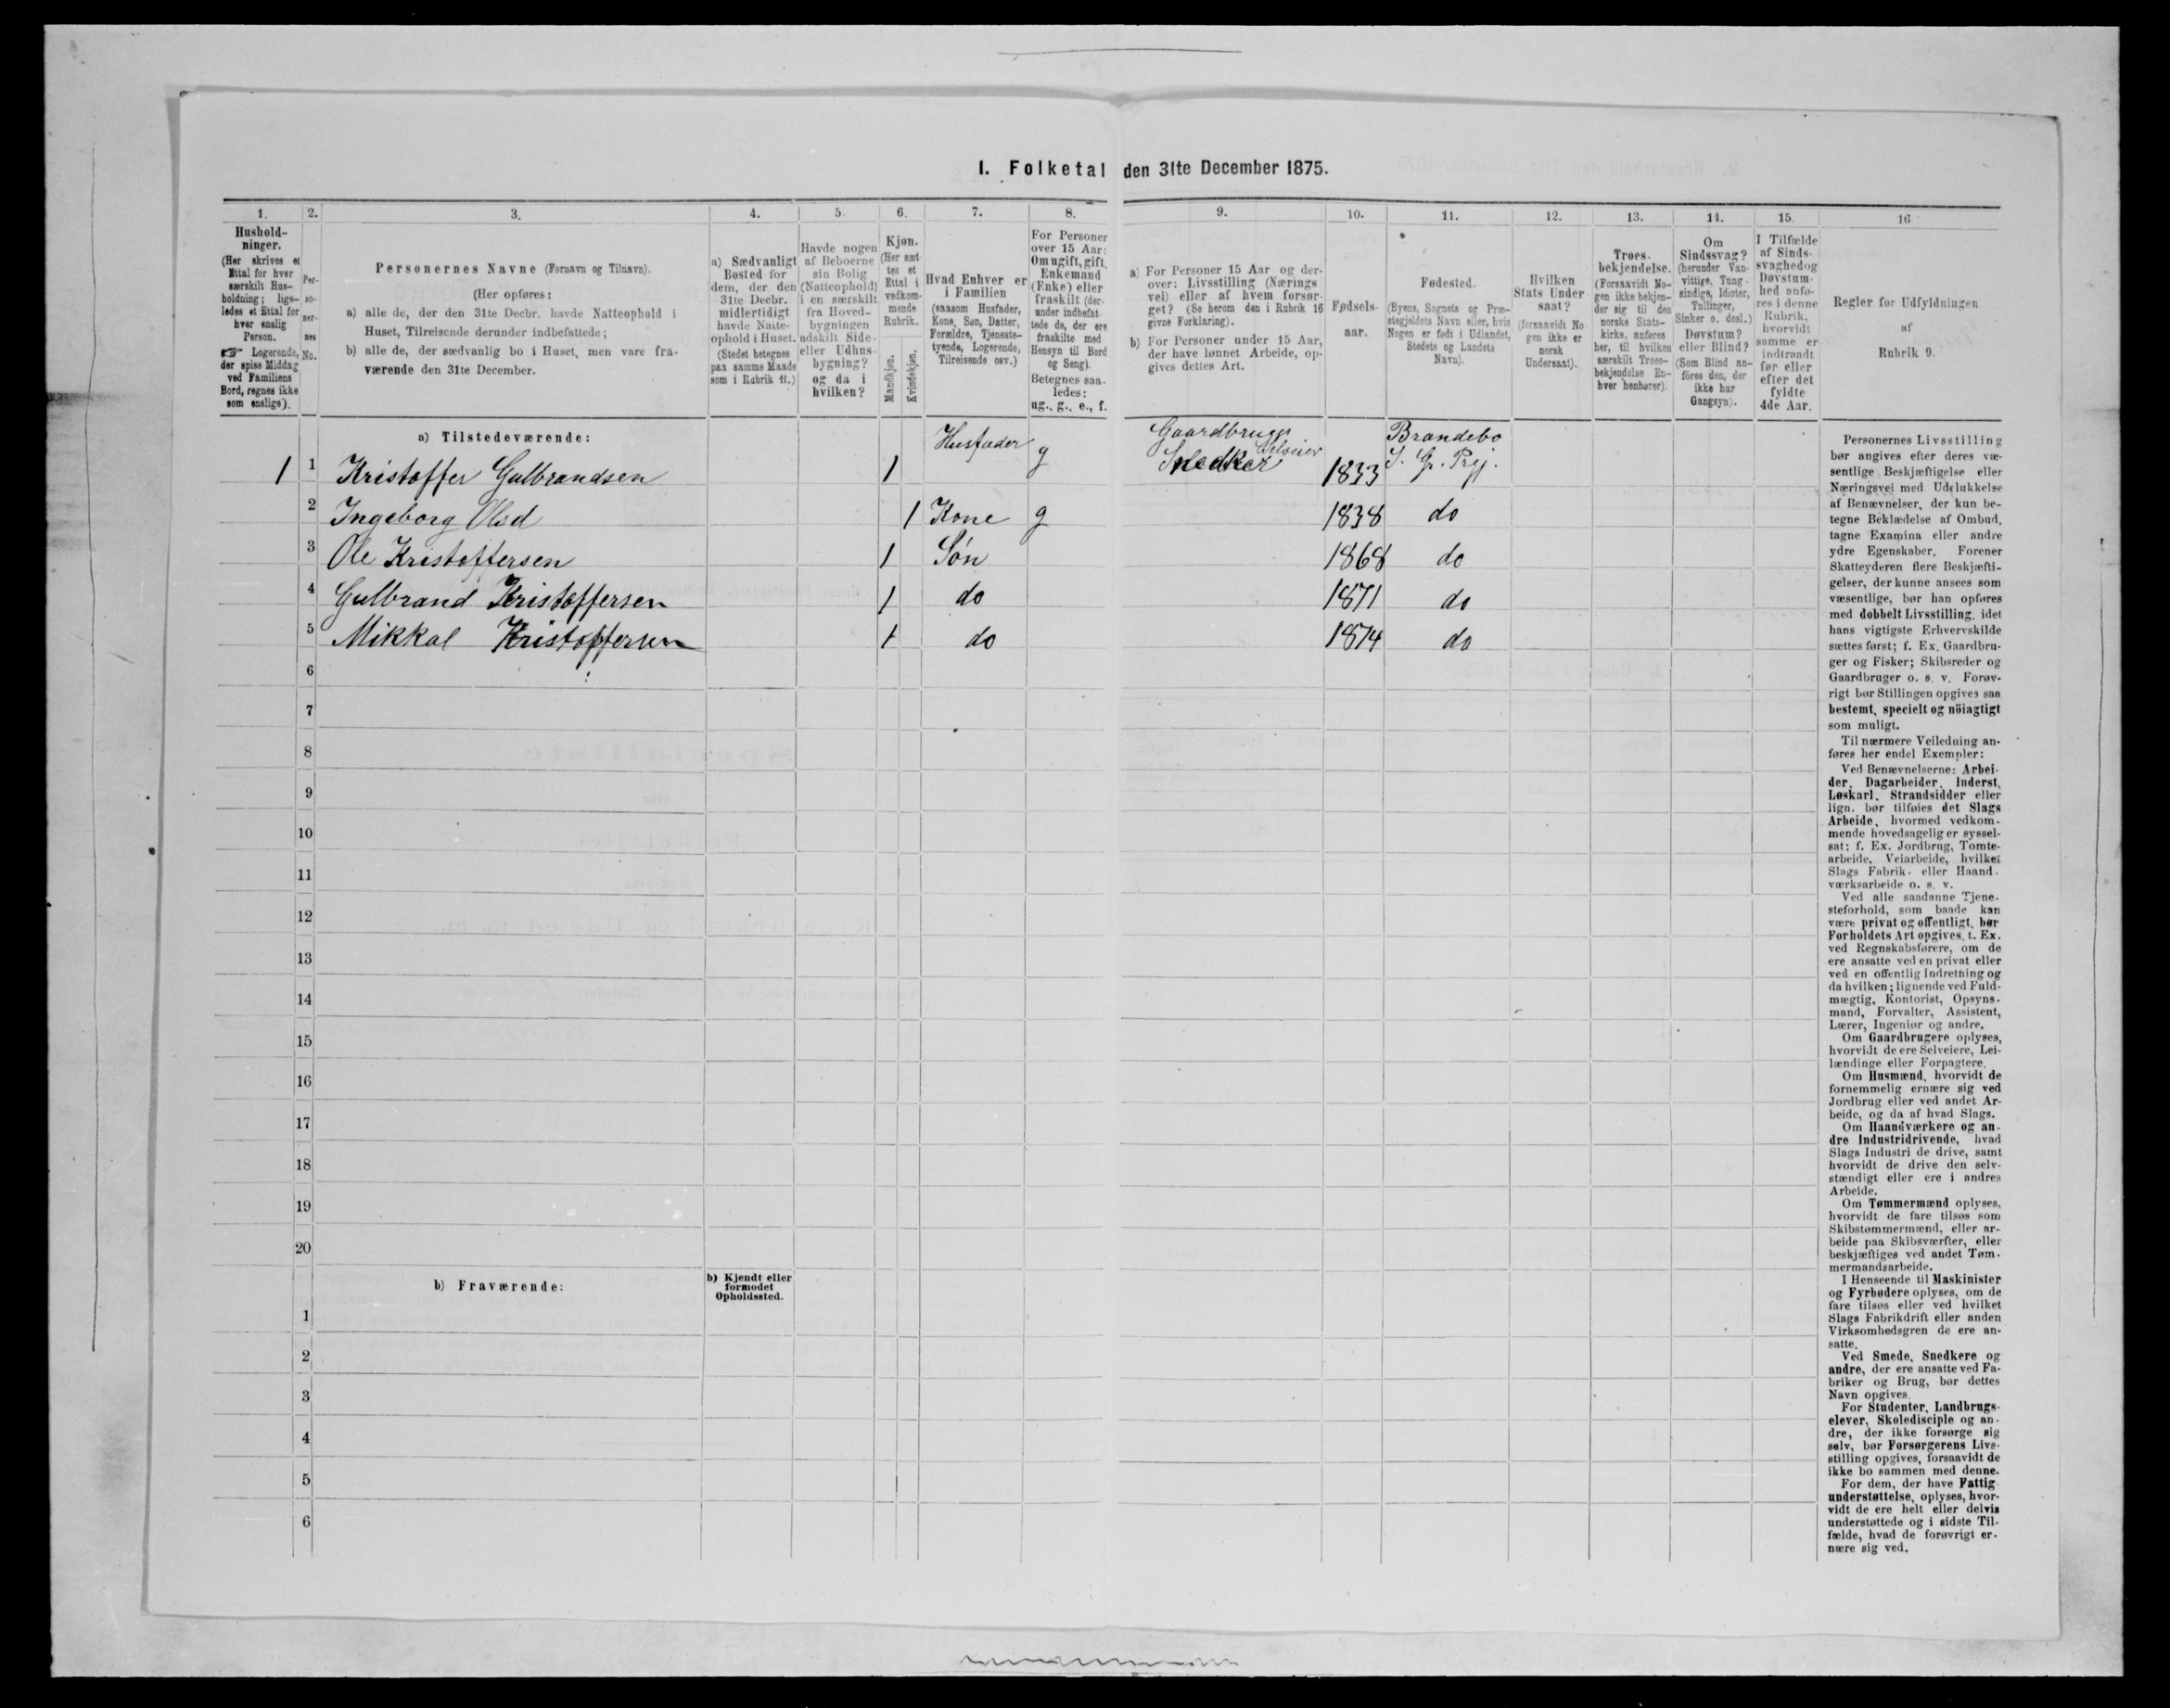 I. Folketal den 31te December 1875.
1. 2. 3. 4. 5. 6. 7. 8. 9. 10. 11. 12. 13. 14. 15. 16.
Hushold-
ninger.
(Her skrives et
Ettal for hver
særskilt Hus-
holdning; lige-
ledes et Ettal for
hver enslig
Person.
☞ Logerende,
der spise Middag
ved Familiens
Bord, regnes ikke
som enslige).
Per-
so-
ner-
nes
No.
Personernes Navne (Fornavn og Tilnavn).
(Her opføres:
a) alle de, der den 31te Decbr. havde Natteophold i
Huset, Tilreisende derunder indbefattede;
b) alle de, der sædvanlig bo i Huset, men vare fra-
værende den 31te December.
a) Sædvanligt
Bosted for
dem, der den
31te Decbr.
midlertidigt
havde Natte-
ophold i Huset.
(Stedet betegnes
paa samme Maade
som i Rubrik 11.)
Havde nogen
af Beboerne
sin Bolig
(Natteophold)
i en særskilt
fra Hoved-
bygningen
adskilt Side-
eller Udhus-
bygning?
og da i
hvilken?
Kjøn.
(Her sæt-
tes et
Ettal i
vedkom-
mende
Rubrik.
Mandkjøn.
Kvindekjøn.
Hvad Enhver er
i Familien
(saasom Husfader,
Kone, Søn, Datter,
Forældre, Tjeneste-
tyende, Logerende,
Tilreisende osv.)
For Personer
over 15 Aar:
Om ugift, gift,
Enkemand
(Enke) eller
fraskilt (der-
under indbefat-
tede de, der ere
fraskilte med
Hensyn til Bord
og Seng).
Betegnes saa-
ledes:
ug., g., e., f.
a) For Personer 15 Aar og der-
over: Livsstilling (Nærings
vei) eller af hvem forsør-
get? (Se herom den i Rubrik 16
givne Forklaring).
b) For Personer under 15 Aar,
der have lønnet Arbeide, op-
gives dettes Art.
Fødsels-
aar.
Fødested.
(Byens, Sognets og Præ-
stegjeldets Navn eller, hvis
Nogen er født i Udlandet,
Stedets og Landets
Navn).
Hvilken
Stats Under
saat?
(forsaavidt No
gen ikke er
norsk
Undersaat).
Troes-
bekjendelse.
(Forsaavidt No-
gen ikke bekjen-
der sig til den
norske Stats-
kirke, anføres
her, til hvilken
særskilt Troes-
bekjendelse En-
hver henhører).
Om
Sindssvag?
(herunder Van-
vittige, Tung-
sindige, Idioter,
Tullinger,
Sinker o. desl.)
Døvstum?
eller Blind?
(Som Blind an-
føres den, der
ikke har
Gangsyn).
I Tilfælde
af Sinds-
svaghed og
Døvstum-
hed anfø-
res i denne
Rubrik,
hvorvidt
samme er
indtraadt
før eller
efter det
fyldte
4de Aar.
Regler for Udfyldningen
af
Rubrik 9.
a) Tilstedeværende:
Husfader Gaardbruger Selveier Brandebo
1 1 Kristoffer Gulbrandsen 1 g Snedker 1833 S. Gr. Prgj.
2 Ingeborg Olsd 1 Kone g 1838 do
3 Ole Kristoffersen 1 Søn 1868 do
4 Gulbrand Kristoffersen 1 do 1871 do
5 Mikkal Kristoffersen 1 do 1874 do
6
7
8
9
10
11
12
13
14
15
16
17
18
19
20
b) Fraværende:
b) Kjendt eller
formodet
Opholdssted.
1
2
3
4
5
6
Personernes Livsstilling
bør angives efter deres væ-
sentlige Beskjæftigelse eller
Næringsvei med Udelukkelse
af Benævnelser, der kun be-
tegne Beklædelse af Ombud,
tagne Examina eller andre
ydre Egenskaber. Forener
Skatteyderen flere Beskjæfti-
gelser, der kunne ansees som
væsentlige, bør han opføres
med dobbelt Livsstilling, idet
hans vigtigste Erhvervskilde
sættes først; f. Ex. Gaardbru-
ger og Fisker; Skibsreder og
Gaardbruger o. s. v. Forøv-
rigt bør Stillingen opgives saa
bestemt, specielt og nöiagtigt
som muligt.
Til nærmere Veiledning an-
føres her endel Exempler:
Ved Benævnelserne: Arbei-
der, Dagarbeider, Inderst,
Løskarl, Strandsidder eller
lign. bør tilføies det Slags
Arbeide, hvormed vedkom-
mende hovedsagelig er syssel-
sat; f. Ex. Jordbrug, Tomte-
arbeide, Veiarbeide, hvilket
Slags Fabrik- eller Haand-
værksarbeide o. s. v.
Ved alle saadanne Tjene-
steforhold, som baade kan
være privat og offentligt, bør
Forholdets Art opgives, t. Ex.
ved Regnskabsførere, om de
ere ansatte ved en privat eller
ved en offentlig Indretning og
da hvilken; lignende ved Fuld-
mægtig, Kontorist, Opsyns-
mand, Forvalter, Assistent,
Lærer, Ingeniør og andre.
Om Gaardbrugere oplyses,
hvorvidt de ere Selveiere, Lei-
lændinge eller Forpagtere.
Om Husmænd, hvorvidt de
fornemmelig ernære sig ved
Jordbrug eller ved andet Ar-
beide, og da af hvad Slags.
Om Haandværkere og an-
dre Industridrivende, hvad
Slags Industri de drive, samt
hvorvidt de drive den selv-
stændigt eller ere i andres
Arbeide.
Om Tømmermænd oplyses,
hvorvidt de fare tilsøs som
Skibstømmermænd, eller ar-
beide paa Skibsværfter, eller
beskjæftiges ved andet Tøm-
mermandsarbeide.
I Henseende til Maskinister
og Fyrbødere oplyses, om de
fare tilsøs eller ved hvilket
Slags Fabrikdrift eller anden
Virksomhedsgren de ere an-
satte.
Ved Smede, Snedkere og
andre, der ere ansatte ved Fa-
briker og Brug, bør dettes
Navn opgives.
For Studenter, Landbrugs-
elever, Skoledisciple og an-
dre, der ikke forsørge sig
selv, bør Forsørgerens Livs-
stilling opgives, forsaavidt de
ikke bo sammen med denne.
For dem, der have Fattig-
understøttelse, oplyses, hvor-
vidt de ere helt eller delvis
understøttede og i sidste Til-
fælde, hvad de forøvrigt er-
nære sig ved.